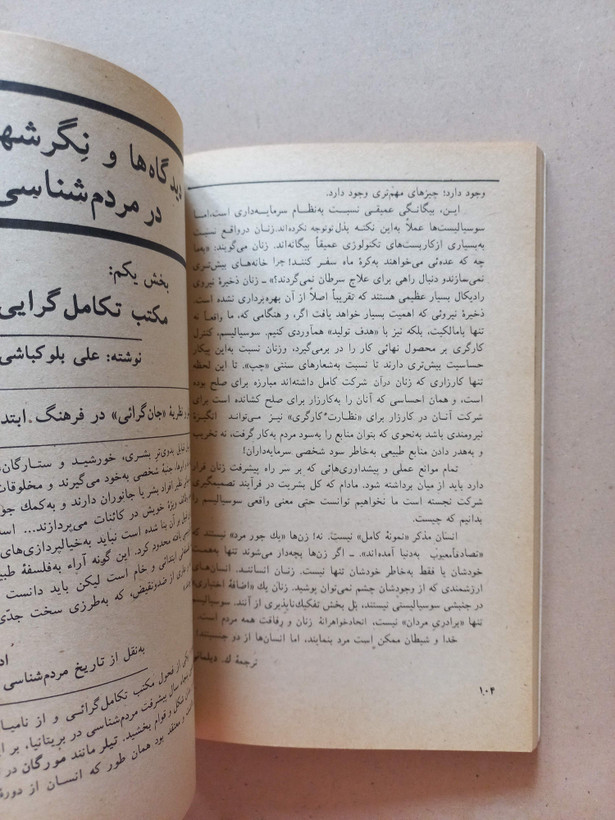 وجود دارد؛ چیزهای مهم‌تری وجود دارد.
این، بیگانگی عمیقی نسبت به‌نظام سرمایه‌داری است، اما
سوسیالیست‌ها عملاً به‌این نکته بذل توجه نکرده‌اند. زنان درواقع نسبت
به‌بسیاری از کاربست‌های تکنولوژی عمیقاً بیگانه‌اند. زنان می‌گویند: «به‌ما
چه که عده‌ئی می‌خواهند به‌کرهٔ ماه سفر کنند! چرا خانه‌های بیش‌تری
نمی‌سازند و دنبال راهی برای علاج سرطان نمی‌گردند؟» ـ زنان ذخیرهٔ نیروی
رادیکال بسیار عظیمی هستند که تقریباً اصلاً از آن بهره‌برداری نشده است.
ذخیرهٔ نیروئی که اهمیت بسیار خواهد یافت اگر، و هنگامی که، ما واقعاً نه
تنها بامالکیت، بلکه نیز با «هدف تولید» هم‌آوردی کنیم. سوسیالیسم، کنترل
کارگری بر محصول نهائی کار را در برمی‌گیرد، و زنان نسبت به‌این پیکار
حساسیت بیش‌تری دارند تا نسبت به‌شعارهای سنتی «چپ». تا این لحظه
تنها کارزاری که زنان درآن شرکت کامل داشته‌اند مبارزه برای صلح بوده
است، و همان احساسی که آنان را به‌کارزار برای صلح کشانده است برای
شرکت آنان در کارزار برای «نظارت کارگری» نیز می‌تواند انگیزهٔ
نیرومندی باشد به‌نحوی که بتوان منابع را به‌سود مردم به‌کار گرفت، نه تخریب
و به‌هدر دادن منابع طبیعی به‌خاطر سود شخصی سرمایه‌داران!
تمام موانع عملی و پیشداوری‌هائی که بر سر راه پیشرفت زنان قرار
دارد باید از میان برداشته شود. مادام که کل بشریت در فرآیند تصمیم‌گیری
شرکت نجسته است ما نخواهیم توانست حتی معنی واقعی سوسیالیسم را
بدانیم که چیست.
انسان مذکر «نمونهٔ کامل» نیست. نه! زن‌ها «یك جور مرد» نیستند که
«تصادفاً معیوب به‌دنیا آمده‌اند». ـ اگر زن‌ها بچه‌دار می‌شوند تنها به‌همت
خودشان یا فقط به‌خاطر خودشان تنها نیست. زنان انسانند. انسان‌های
ارزشمندی که از وجودشان چشم نمی‌توان پوشید. زنان یك «اضافهٔ اختیاری»
در جنبشی سوسیالیستی نیستند، بل بخش تفکیك‌ناپذیری از آنند. سوسیالیسم
تنها «برادری مردان» نیست، اتحاد خواهرانهٔ زنان و رفاقت همه مردم است.
خدا و شیطان ممکن است مرد بنمایند، اما انسان‌ها از دو جنسیتند!
ترجمهٔ ك. دیلمانی
۱۰۴
دیدگاه‌ها و نِگرشها
در مردم‌شناسی
بخش یکم:
مکتب تکامل‌گرایی
نوشته: علی بلوکباشی
نظریهٔ «جان‌گرائی» در فرهنگ ابتد
بشری، خورشید و ستارگان
جنبهٔ شخصی به‌خود می‌گیرند و مخلوقات
افراد بشر یا جانوران دارند و به‌کمك
ویژهٔ خویش در کائنات می‌پردازند...
بنا شده است نباید به‌خیالپردازی‌های
محدود کرد. این گونه آراء به‌فلسفهٔ
ابتدائی و خام است لیکن باید دانست
که به‌طرزی سخت جدّی
به‌نقل از تاریخ مردم‌شناسی
از فحول مکتب تکامل‌گرائی و از
پیشرفت مردم‌شناسی در بریتانیا، بر
و قوام بخشید. تیلر مانند مورگان در
معتقد بود همان طور که انسان از دورهٔ